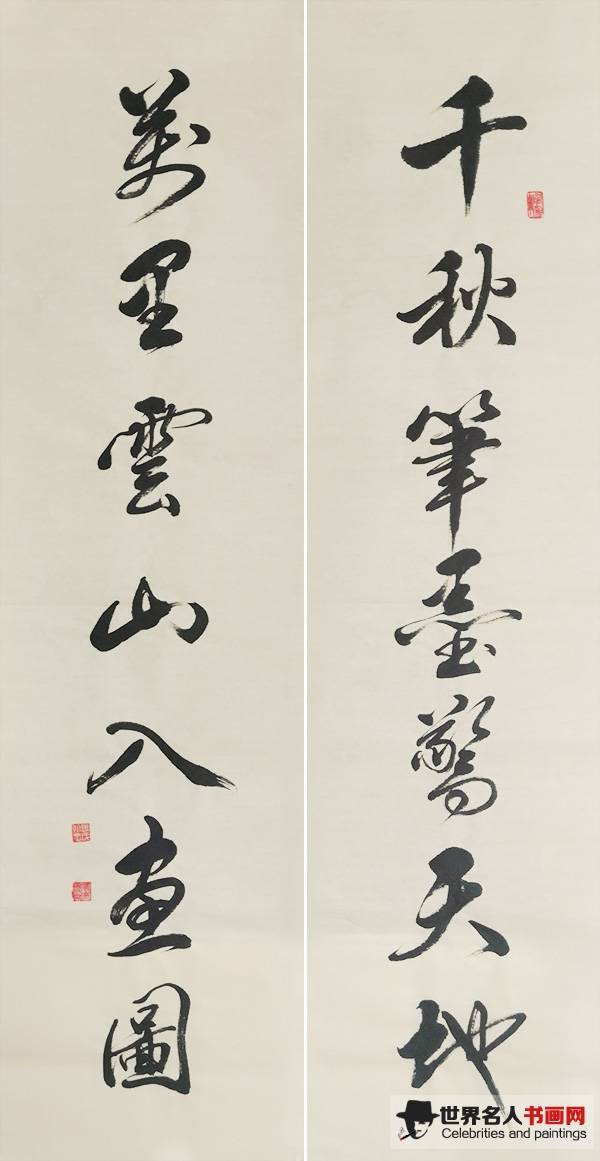 千秋筆墨驚天地
萬里雲山入畫圖
世界名人书画网
Celebrities and paintings